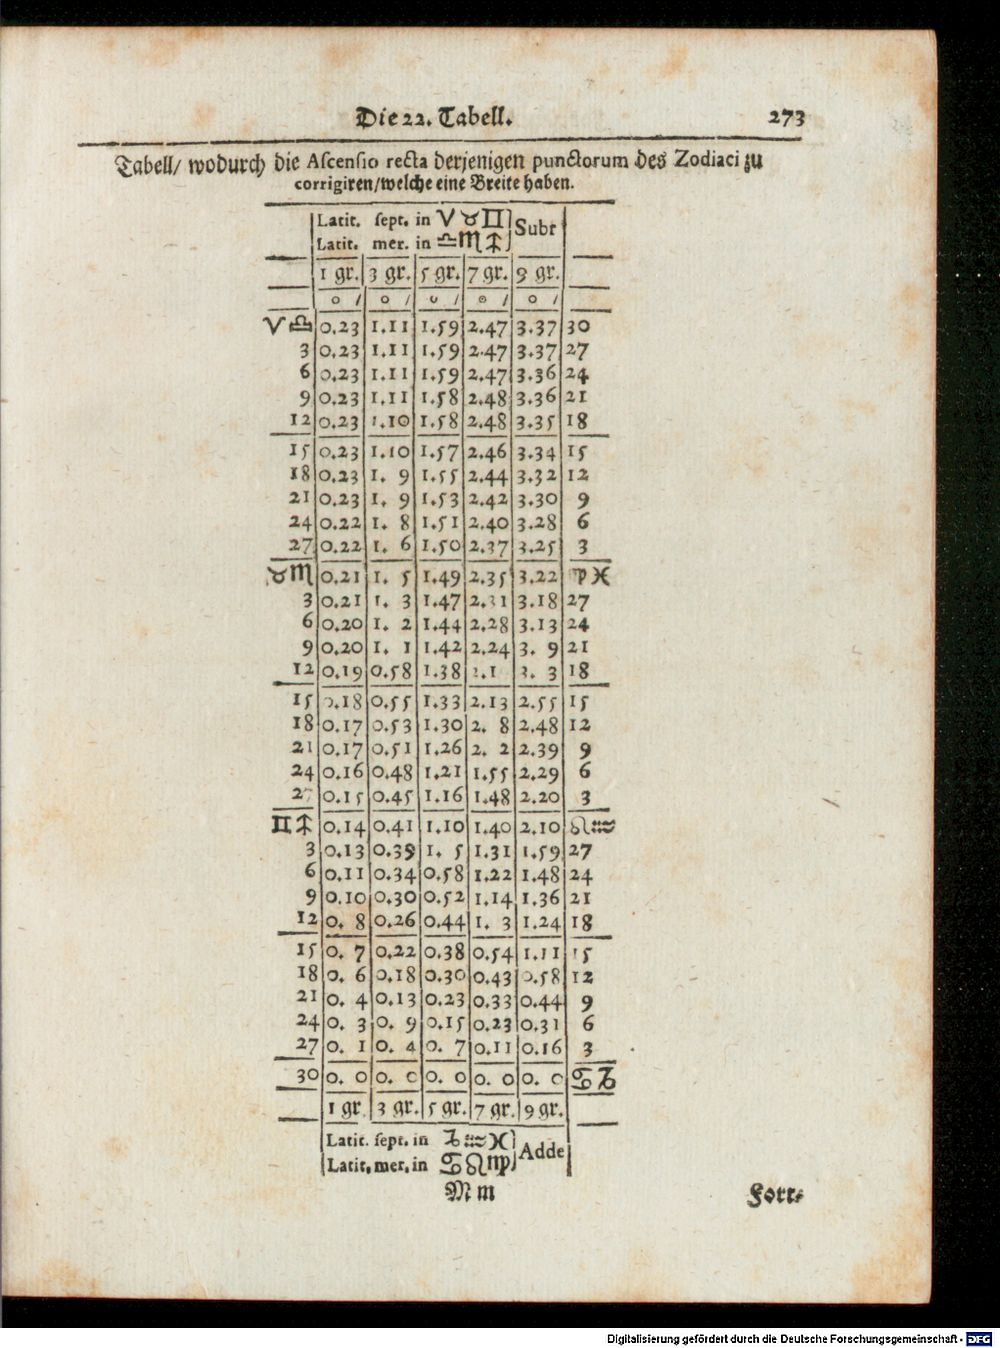 Die 22. Tabell. 273
Tabell/ wodurch die Ascensio recta derjenigen punctorum des Zodiaci zu
corrigiren/welche eine Breite haben.
Latit. sept. in ♈ ♉ ♊ Subt
Latit. mer. in ♎ ♏ ♐
1 gr. 3 gr. 5 gr. 7 gr. 9 gr.
o / o / o / o / o /
♈ ♎ 0.23 1.11 1.59 2.47 3.37 30
3 0.23 1.11 1.59 2.47 3.37 27
6 0.23 1.11 1.59 2.47 3.36 24
9 0.23 1.11 1.58 2.48 3.36 21
12 0.23 1.10 1.58 2.48 3.35 18
15 0.23 1.10 1.57 2.46 3.34 15
18 0.23 1. 9 1.55 2.44 3.32 12
21 0.23 1. 9 1.53 2.42 3.30 9
24 0.22 1. 8 1.51 2.40 3.28 6
27 0.22 1. 6 1.50 2.37 3.25 3
♉ ♏ 0.21 1. 5 1.49 2.35 3.22 ♍ ♓
3 0.21 1. 3 1.47 2.31 3.18 27
6 0.20 1. 2 1.44 2.28 3.13 24
9 0.20 1. 1 1.42 2.24 3. 9 21
12 0.19 0.58 1.38 3. 3 18
15 0.18 0.55 1.33 2.13 2.55 15
18 0.17 0.53 1.30 2. 8 2.48 12
21 0.17 0.51 1.26 2. 2 2.39 9
24 0.16 0.48 1.21 1.55 2.29 6
27 0.15 0.45 1.16 1.48 2.20 3
♊ ♐ 0.14 0.41 1.10 1.40 2.10 ♌ ♒
3 0.13 0.39 1. 5 1.31 1.59 27
6 0.11 0.34 0.58 1.22 1.48 24
9 0.10 0.30 0.52 1.14 1.36 21
12 0. 8 0.26 0.44 1. 3 1.24 18
15 0. 7 0.22 0.38 0.54 1.11 15
18 0. 6 0.18 0.30 0.43 0.58 12
21 0. 4 0.13 0.23 0.33 0.44 9
24 0. 3 0. 9 0.15 0.23 0.31 6
27 0. 1 0. 4 0. 7 0.11 0.16 3
30 0. 0 0. 0 0. 0 0. 0 0. 0 ♋ ♑
1 gr. 3 gr. 5 gr. 7 gr. 9 gr.
Latit. sept. in ♑ ♒ ♓ Adde
Latit. mer. in ♋ ♌ ♍
M m Fort-
Digitalisierung gefördert durch die Deutsche Forschungsgemeinschaft - DFG